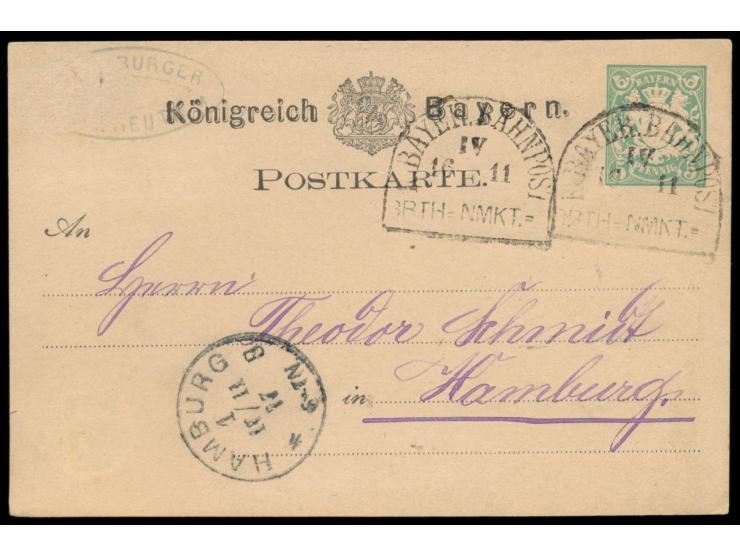 BURGER
Königreich Bayern.
BAYERN
5 5
PFENNIG
POSTKARTE.
K. BAYER. BAHNPOST
IV
16 11
RTH=NMKT.=
K. BAYER. BAHNPOST
IV
11
RTH=NMKT.=
An
Herrn
Theodor Schmidt
in Hamburg.
HAMBURG 1